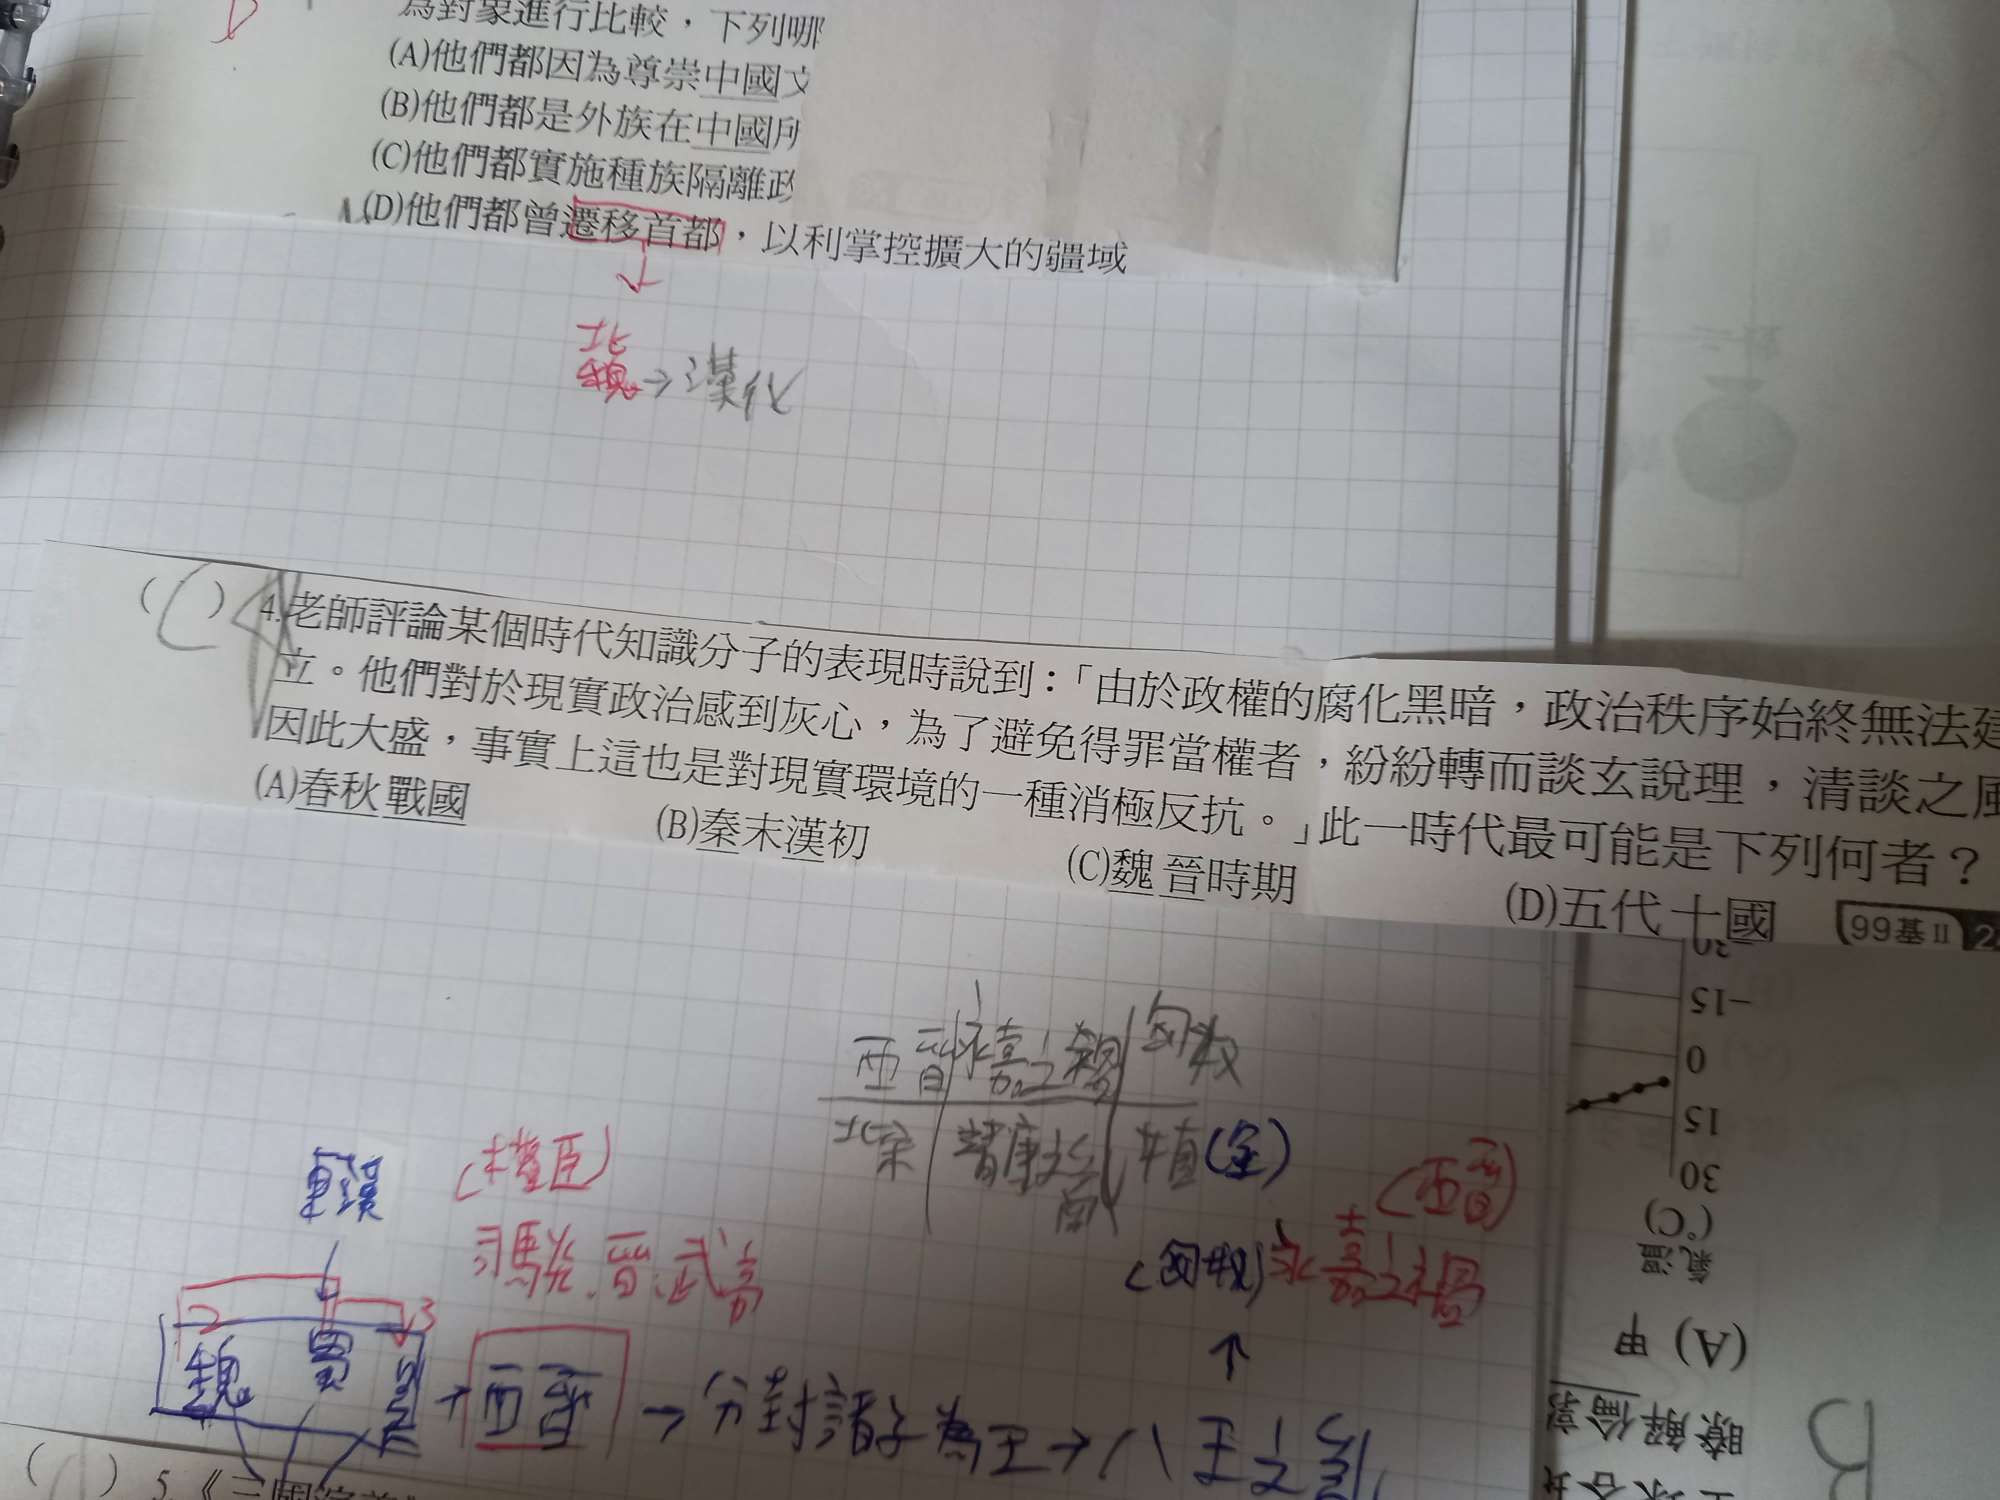 為對象進行比較，下列哪
(A)他們都因為尊崇中國文
(B)他們都是外族在中國所
(C)他們都實施種族隔離政
(D)他們都曾遷移首都，以利掌控擴大的疆域
北魏→漢化
( C ) 4.老師評論某個時代知識分子的表現時說到：「由於政權的腐化黑暗，政治秩序始終無法建
立。他們對於現實政治感到灰心，為了避免得罪當權者，紛紛轉而談玄說理，清談之風
因此大盛，事實上這也是對現實環境的一種消極反抗。」此一時代最可能是下列何者？
(A)春秋戰國 (B)秦末漢初 (C)魏晉時期 (D)五代十國 99基II 2
西晉 永嘉之禍 匈奴
北宋 靖康之 (金)
(權臣) (西晉)
(匈奴) 永嘉之禍
2 3
魏 蜀 吳 → 西晉 → 分封諸子為王 → 八王之亂
( ) 5.《三國演義》
-15
0
15
30
(℃)
氣溫
(A) 甲
瞭解倫敦
B